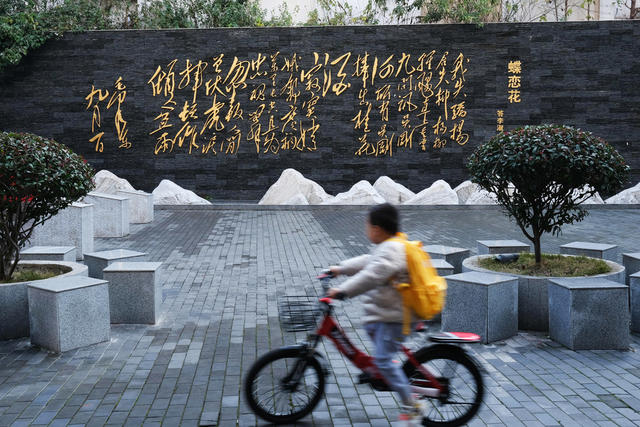 蝶恋花
答李淑
我失骄杨
君失柳杨柳
轻飏直上重霄
九问讯吴刚
何所有吴刚
捧出桂花
酒
寂寞嫦
娥舒广袖
万里长空且为
忠魂舞
忽报人
间曾伏虎
泪飞
顿作
倾盆雨
毛泽东
九月